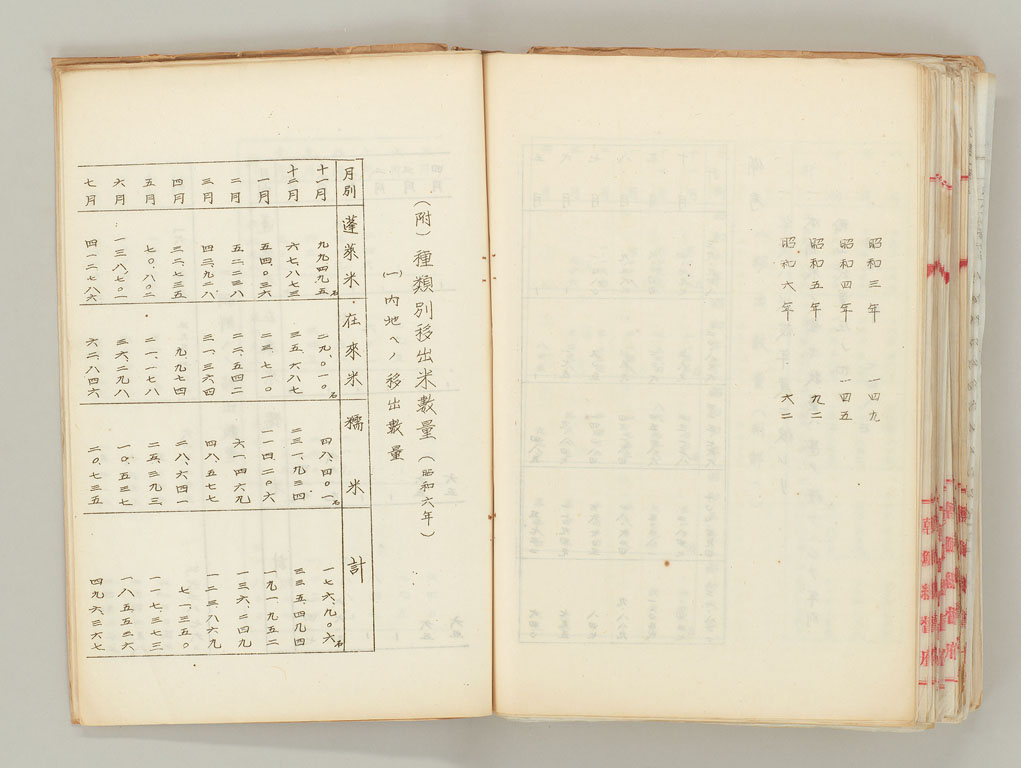 昭和三年 一四九
昭和四年 一四五
昭和五年 九二
昭和六年 六二
(附)種類別移出米數量(昭和六年)
(一)內地ヘノ移出數量
月別 蓬萊米 在來米 糯米 計
十一月 九九四九五石 二九、〇一〇石 四八、四〇一石 一七六、九〇六石
十二月 六七、八七三 三五、六八七 二三一、九三四 三三五、四九四
一月 五四〇三六 二三、七一〇 一一四二〇六 一九一九五二
二月 五二二三八 二二、五四二 六一四六九 一三六、二四九
三月 四三、九二八 三一、三六四 四八、五七七 一二三八六九
四月 三二、七三五 九九七四 二八、六四一 七一、三五〇
五月 七〇、八〇二 二一、一七八 二五、三九三 一一七、三七三
六月 一三八、七〇一 三六、二九八 一〇、五二七 一八五五二六
七月 四一二七八六 六二、八四六 二〇、七三五 四九六三六七